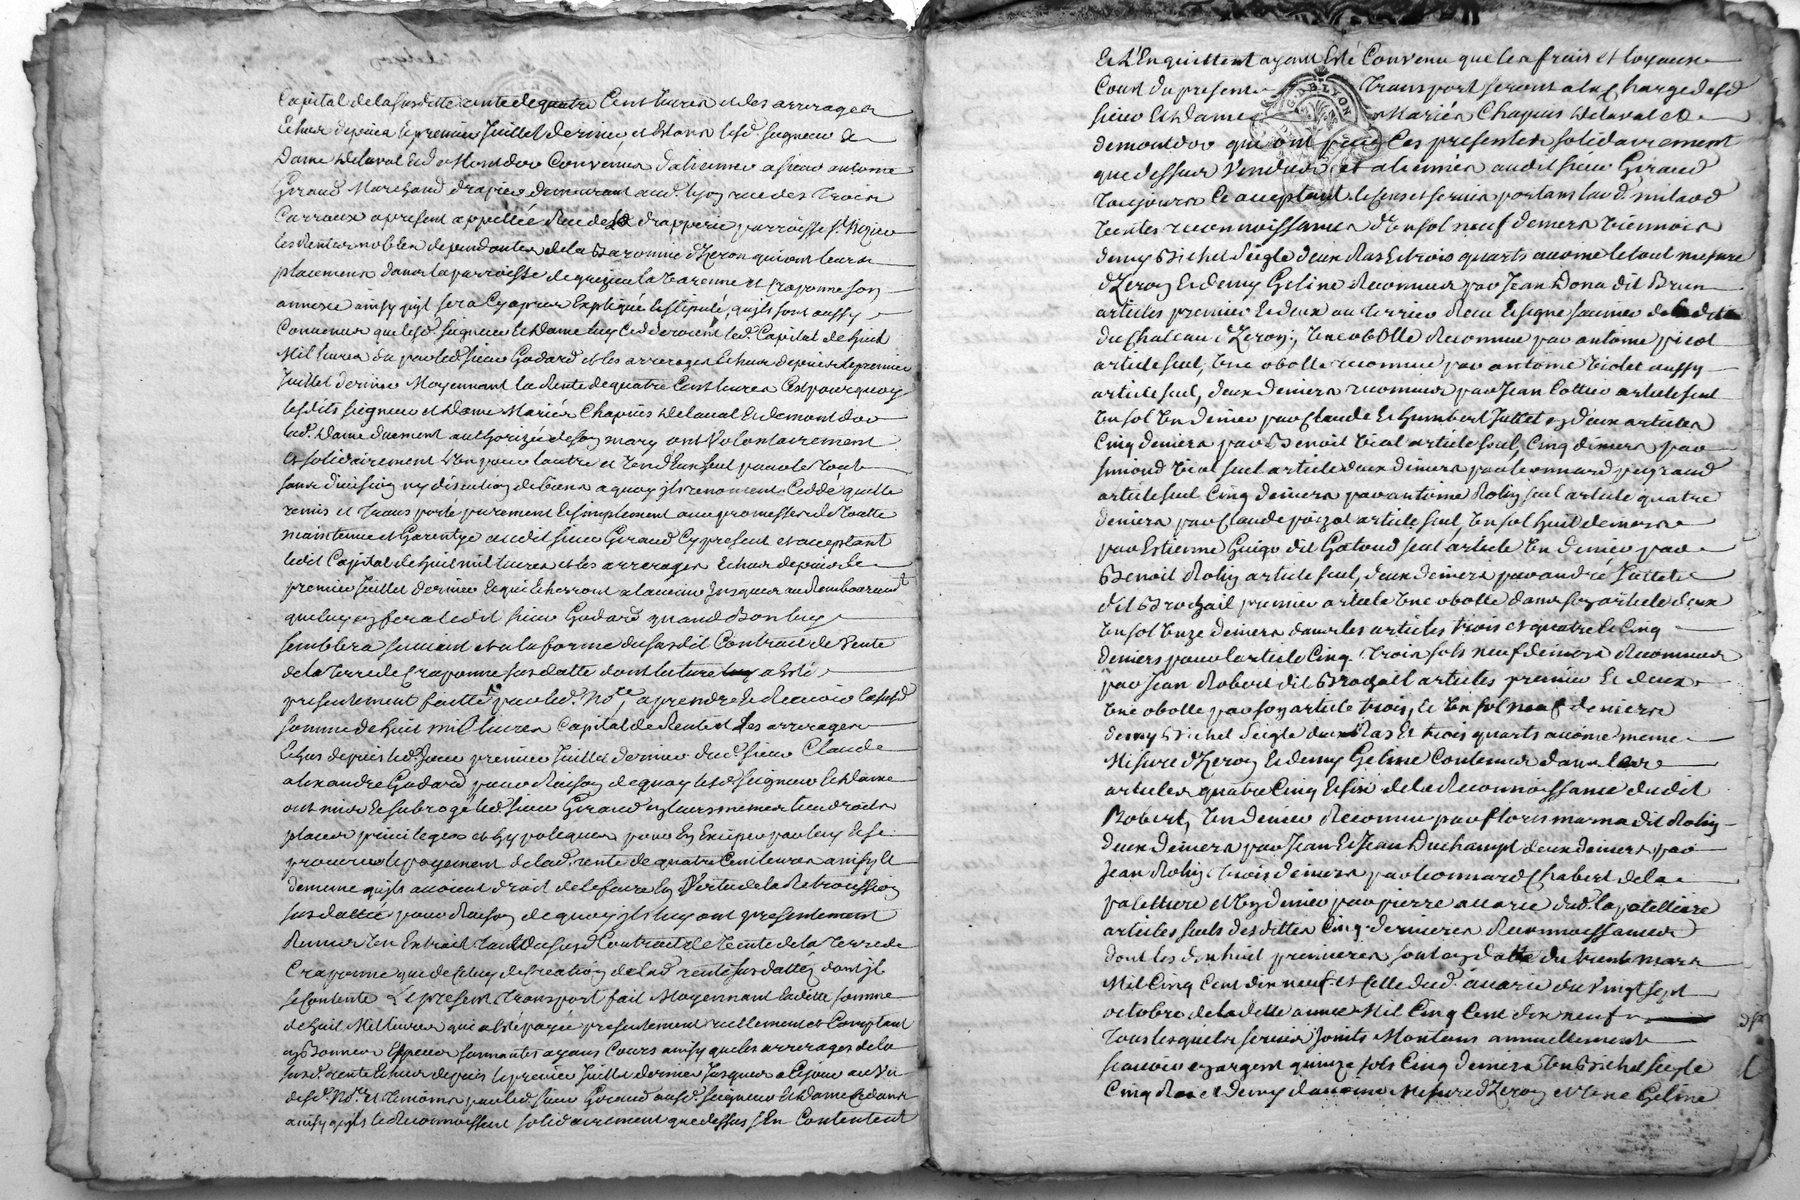 Capital de la susditte rente de quatre Cent livres et des arrerages
Echus depuis le premier Juillet dernier et Estans lesd. seigneur &
Dame Delaval Et de Montdor Convenus d'aliener a sieur antoine
Giraud Marchand drapier demeurant aud. Lyon rue des Trois
Carreaux apresent appellée Rue de la drapperie parroisse st. Nizier
les Rentes nobles dependantes de la Baronnie d'Yzeron qui ont leurs
placements dans la parroisse de grezieu la Varenne et Craponne son
annexe ainsy qu'il sera Cy apres Expliqué Et stipulé, qu'ils sont aussy
Convenus que lesd. seigneur Et Dame luy Cedderoient led. Capital de huit
Mil livres du par led. sieur Godard et les arrerages Echus depuis le premier
Juillet dernier Moyennant la Rente de quatre Cent livres C'est pourquoy
lesdits seigneur et Dame Mariés Chapuis Delaval Et de mont dor
lad. Dame duement authorizée de son mary ont Volontairement
Et solidairement L'un pour l'autre et l'un d'Eux seul pour le Tout
sans division ny discution de biens a quoy ils renoncent Ceddé quitté
remis et Transporté purement Et simplement avec promesse de Noatte
maintenue et Garentye audit sieur Giraud Cy present et acceptant
ledit Capital de huit mil livres et les arrerages Echus depuis le
premier Juillet dernier Et qui Echerront a l'avenir Jusques au Rembourcemt
que luy en fera ledit sieur Godard quand Bon luy
semblera suivant et a la forme du susdit Contrait de Vente
de la Terre de Craponne susdatté dont lecture a Esté
presentement faitte par led. Nore, a prendre Et Recevoir lasusd
somme de huit mil livres Capital de Rente et les arrerages
Echus depuis led. Jour premier Juillet dernier dud. sieur Claude
alexandre Godard pour Raison de quoy lesd. seigneur Et Dame
ont mis Et subrogé led. sieur Giraud en leurs mesmes lieu droits
places privileges et hypoteques pour En Exiper par luy Et se
procurer le payement de lad. rente de quatre Cent livres ainsy Et
de meme qu'ils avoient droit de le faire En Vertu de la
susdattée pour Raison de quoy ils luy ont presentement
Remis Un Extrait Tant du susd. Contrait de Vente de la Terre de
Craponne que de Celuy de Creation de lad. rente susdatté, dont il
se Contente Le present Transport fait Moyennant laditte somme
de huit Mil livres qui a Esté payée presentement reellement et Comptant
en Bonnes Especes sonnantes ayans Cours ainsy que les arrerages de la
susd. rente Echus depuis le premier Juillet dernier Jusques a Cejour au Vu
desd. Nore. et Temoins par led. sieur Giraud ausd. seigneur Et Dame Cedans
ainsy qu'ils le Reconnoissent solidairement que dessus s'En Contentent
Et L'En quittent ayant Esté Convenu que les frais et loyaux
Cout du present Transport seront a la Charge desd
sieur Et Dame Mariés Chapuis Delaval &
demontdor qui ont par Ces presentes solidairement
que dessus Vendus et alienés audit sieur Giraud
Toujours acceptant le sens et servis portans laod. milaod
Ventes reconnoissances d'un sol neuf deniers Viennois
demy Bichet seigle deux Ras Et trois quarts avoine le tout mesure
d'Yzeron Et demy Geline Reconnus par Jean Dona dit Brun
articles premier Et deux au terrier Reçu Et signé saunier
du Chateau d'Yzeron; Une obolle Reconnue par antoine picot
article seul, Une obolle reconnue par antoine Violet aussy
article seul, deux deniers reconnus par Jean Cottier article seul
Un sol Un denier par Claude Et humbert Juttet en deux articles
Cinq deniers par Benoit Vial article seul, Cinq deniers par
simond Vial seul article deux deniers par Leonnard peyraud
article seul Cinq deniers par antoine Robin seul article quatre
deniers par Claude poizat article seul, Un sol huit deniers
par Estienne Guigo dit Gatoud seul article Un denier par
Benoit Robin article seul, deux deniers par andré Juttet
dit Brochail premier article Une obolle dans son article deux
Un sol Unze deniers dans les articles trois et quatre Et Cinq
deniers pour l'article Cinq. Trois sols neuf deniers Reconnus
par Jean Robert dit Brochail articles premier Et deux
Une obolle par son article trois, Et Un sol neuf deniers
demy Bichet seigle deux Ras Et trois quarts avoine meme
Mesure d'Yzeron Et demy Geline Contenus dans les
articles quatre Cinq Et six de la Reconnoissance dudit
Robert, Un denier Reconnu par floris marna dit Robin
deux deniers par Jean Et Jean Duchampt deux deniers par
Jean Robin Trois deniers par Leonnard Chabert de la
paletture et Un denier par pierre avarie dud. la patelliere
articles seuls desdittes Cinq dernieres Reconnoissances
dont les dixhuit premieres sont en datte du trente mars
Mil Cinq Cent dix neuf et Celle dud. avarie du Vingt sept
octobre de laditte année Mil Cinq Cent dix neuf
Tous lesquels servis Joints Montans annuellement
scavoir en argent quinze sols Cinq deniers Un Bichet seigle
Cinq Ras et demy d'avoine Mesure d'Yzeron et Une Geline
GNAB LYON